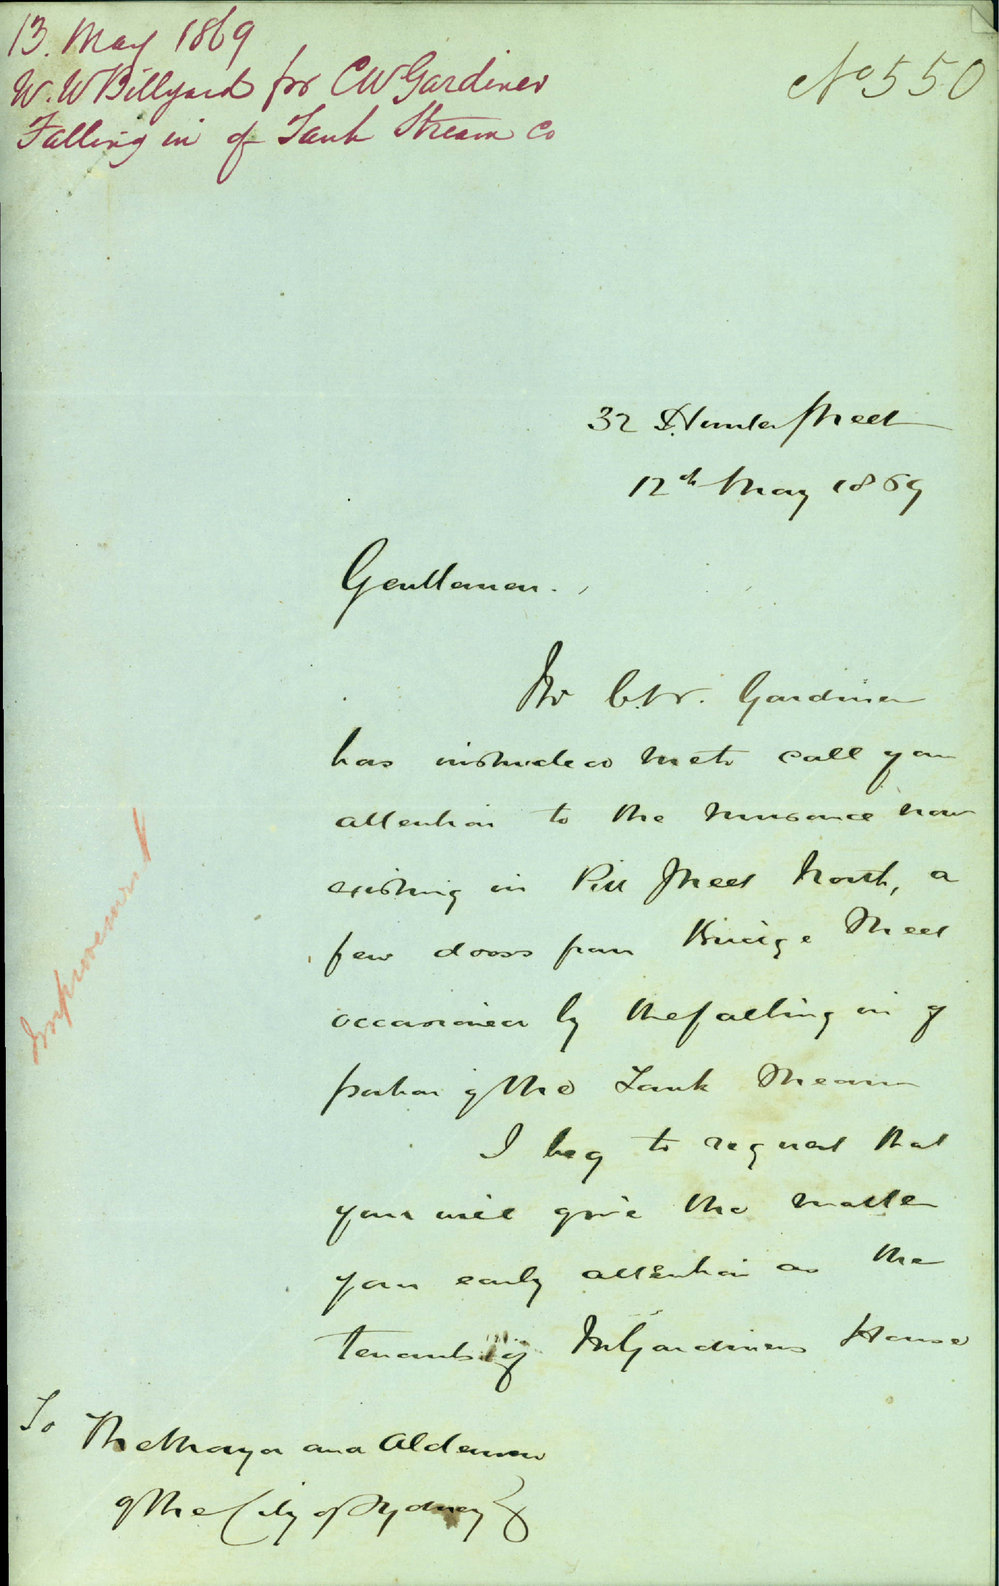 13. May 1869
W. W Billyard for C W Gardiner
Falling in of Tank Stream Co
No 550
32 Hunter Street
12th May 1869
Gentlemen.
Mr C. W. Gardiner
has instructed me to call your
attention to the nuisance now
existing in Pitt Street North, a
few doors from Bridge Street
occasioned by the falling in of
portion of the Tank Stream
I beg to request that
you will give the matter
your early attention as the
tenants of Mr Gardiners House
Improvement
To
The Mayor and Aldermen
of the City of Sydney